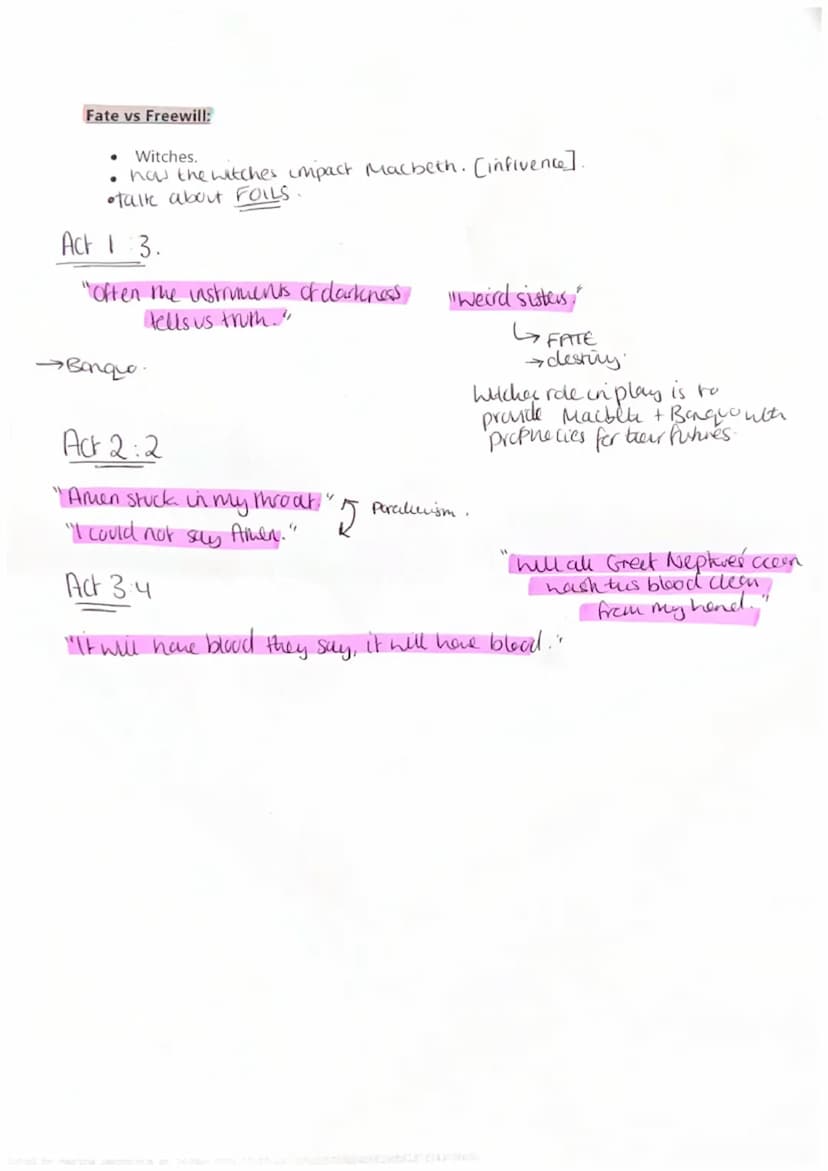 Fate vs Freewill:
• Witches.
• how the witches impact Macbeth. [influence].
• talk about FOILS.
Act 1:3.
"Often the instruments of darkness
tells us truth."
→ Banquo.
"Weird sisters,"
↳ FATE
→ destiny.
Witches role in play is to
provide Macbeth + Banquo with
prophecies for their futures.
Act 2:2
"Amen stuck in my throat,"
"I could not say Amen."
Parallelism.
"will all Great Neptunes' ocean
wash this blood clean
from my hand."
Act 3:4
"It will have blood they say, it will have blood."